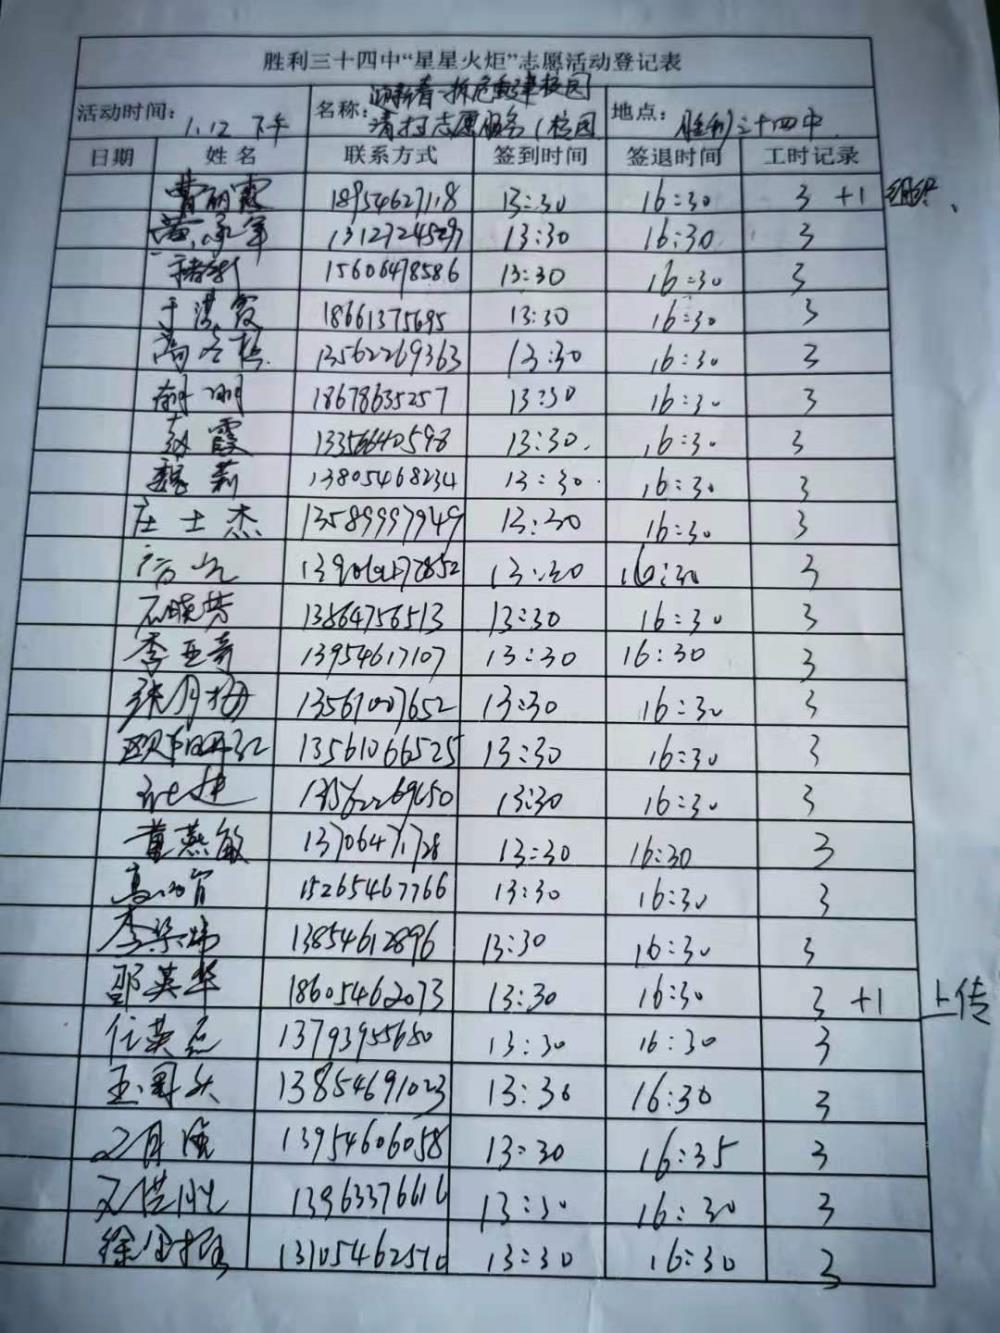 胜利三十四中“星星火炬”志愿活动登记表
活动时间： 1.12 下午 名称： 清扫志愿服务（校园 地点： 胜利三十四中
日期 姓名 联系方式 签到时间 签退时间 工时记录
曹丽霞 18954627118 13:30 16:30 3 +1 组织、
13127245297 13:30 16:30 3
15606478586 13:30 16:30 3
于洪霞 18661375695 13:30 16:30 3
13562269363 13:30 16:30 3
18678635257 13:30 16:30 3
赵霞 13356640598 13:30. 16:30 3
魏莉 13805468234 13:30 16:30 3
庄士杰 13589997949 13:30 16:30 3
13:30 16:30 3
石晓芳 13864756513 13:30 16:30 3
李亚奇 13954617107 13:30 16:30 3
张月梅 13561007652 13:30 16:30 3
欧阳丹红 13561066525 13:30 16:30 3
13562269650 13:30 16:30 3
董燕敏 13706471728 13:30 16:30 3
15265467766 13:30 16:30 3
李荣炜 13854612896 13:30 16:30 3
邵英华 18605462073 13:30 16:30 3 +1 上传
任英磊 13793955680 13:30 16:30 3
13854691023 13:30 16:30 3
13954606058 13:30 16:35 3
13963376616 13:30 16:30 3
13105462570 13:30 16:30 3